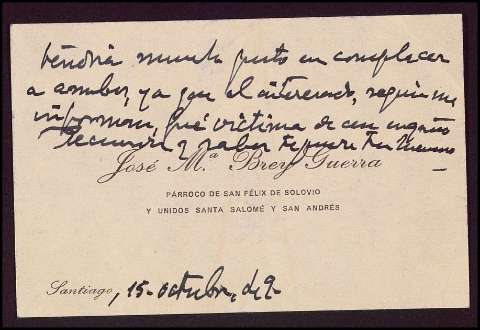 tendría mucho gusto en complacer
a ambos, ya que el interesado, según me
informan, fué víctima de un engaño
José Mª Brey Guerra
PÁRROCO DE SAN FÉLIX DE SOLOVIO
Y UNIDOS SANTA SALOMÉ Y SAN ANDRÉS
Santiago, 15-octubre, de 9-